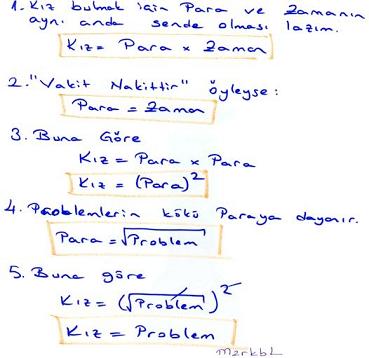 1. Kız bulmak için Para ve Zamanın
aynı anda sende olması lazım.
Kız = Para x Zaman
2. "Vakit Nakittir" öyleyse:
Para = Zaman
3. Buna Göre
Kız = Para x Para
Kız = (Para)²
4. Problemlerin kökü Paraya dayanır.
Para = √Problem
5. Buna göre
Kız = (√Problem)²
Kız = Problem
merkbl